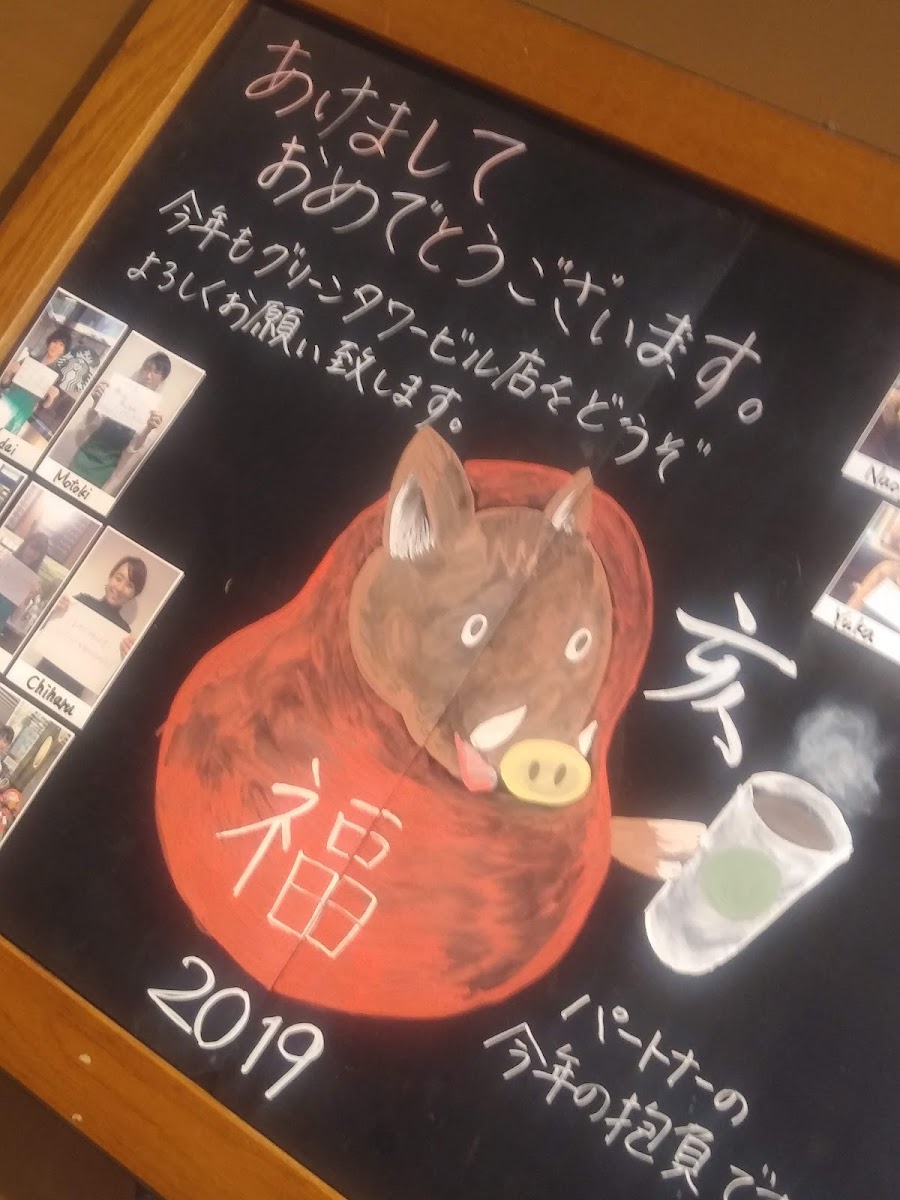 あけまして
おめでとうございます。
今年もグリーンタワービル店をどうぞ
よろしくお願い致します。
Motoki
Chiharu
Yuka
亥
福
2019
パートナーの
今年の抱負です